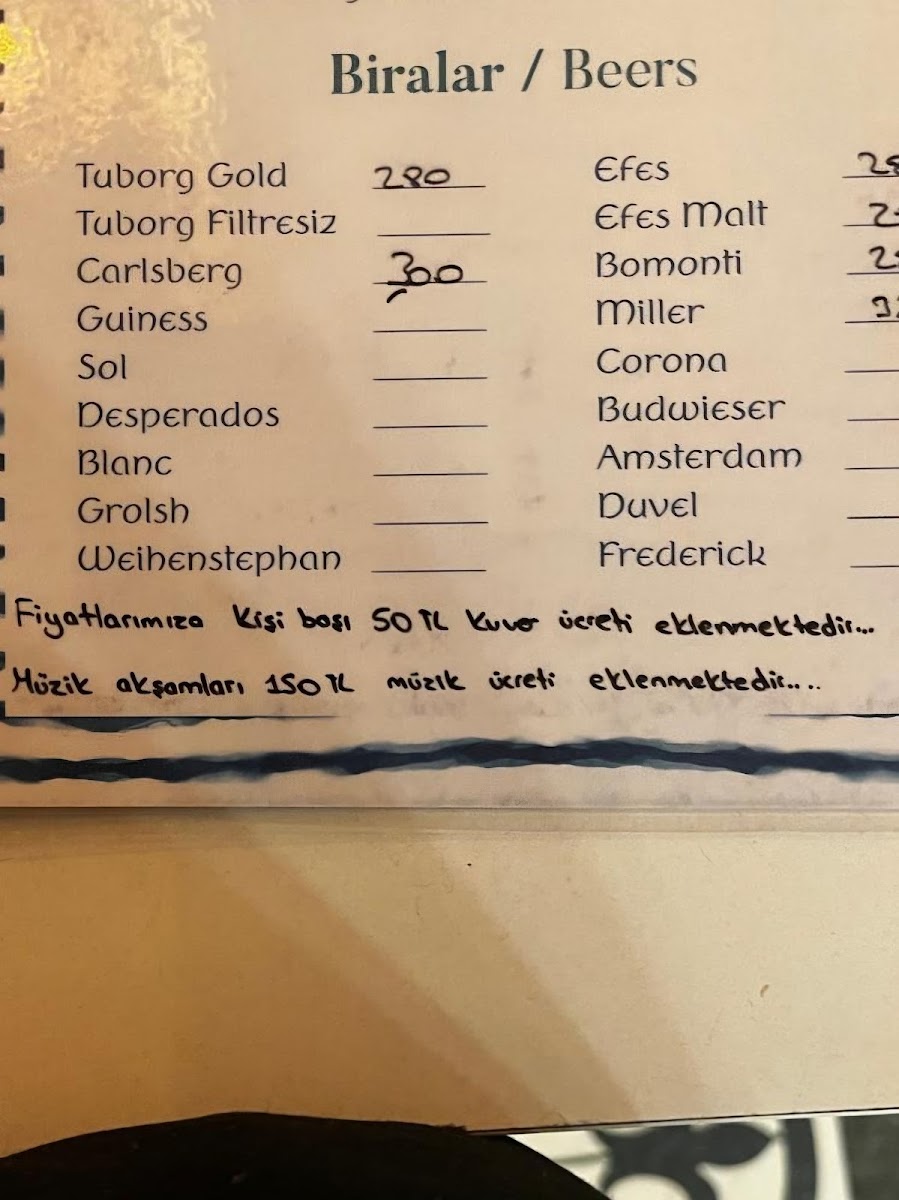 Biralar / Beers
Tuborg Gold 280
Tuborg Filtresiz
Carlsberg 300
Guiness
Sol
Desperados
Blanc
Grolsh
Weihenstephan
Efes
Efes Malt
Bomonti
Miller
Corona
Budwieser
Amsterdam
Duvel
Frederick
Fiyatlarımıza Kişi başı 50 TL Kuver ücreti eklenmektedir...
Müzik akşamları 150 TL müzik ücreti eklenmektedir....